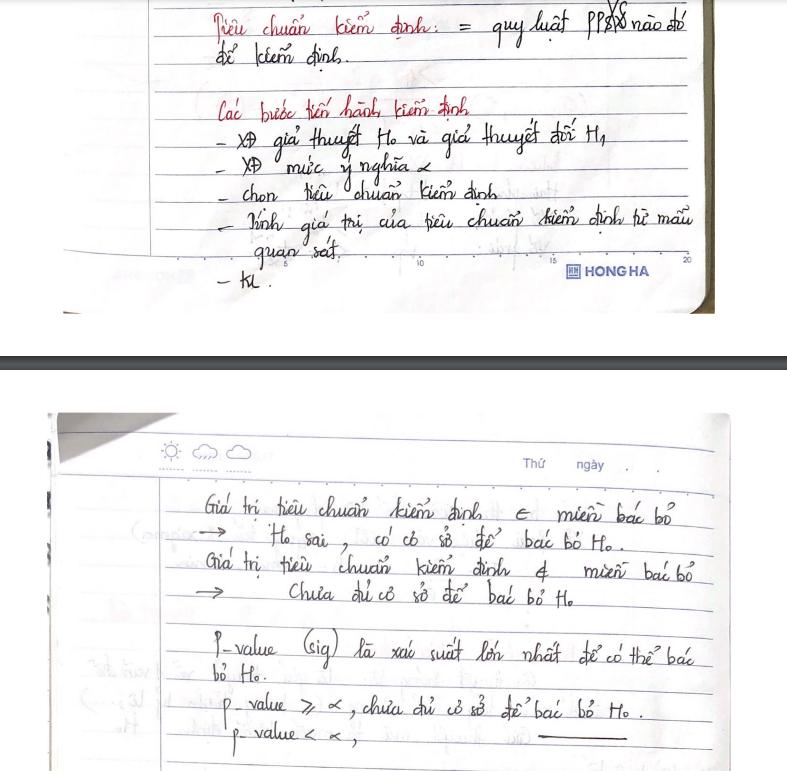 Tiêu chuẩn kiểm định: = quy luật PPXS nào đó
để kiểm định.
Các bước tiến hành kiểm định
- XĐ giả thuyết H₀ và giả thuyết đối H₁
- XĐ mức ý nghĩa α
- chọn tiêu chuẩn kiểm định
- Tính giá trị của tiêu chuẩn kiểm định từ mẫu
quan sát.
5 10 15 20
HONG HA
- KL.
Thứ ngày . .
Giá trị tiêu chuẩn kiểm định ∈ miền bác bỏ
→ H₀ sai, có cơ sở để bác bỏ H₀.
Giá trị tiêu chuẩn kiểm định ∉ miền bác bỏ
→ Chưa đủ cơ sở để bác bỏ H₀
P-value (sig) là xác suất lớn nhất để có thể bác
bỏ H₀.
p-value ≥ α, chưa đủ cơ sở để bác bỏ H₀.
p-value < α, ————